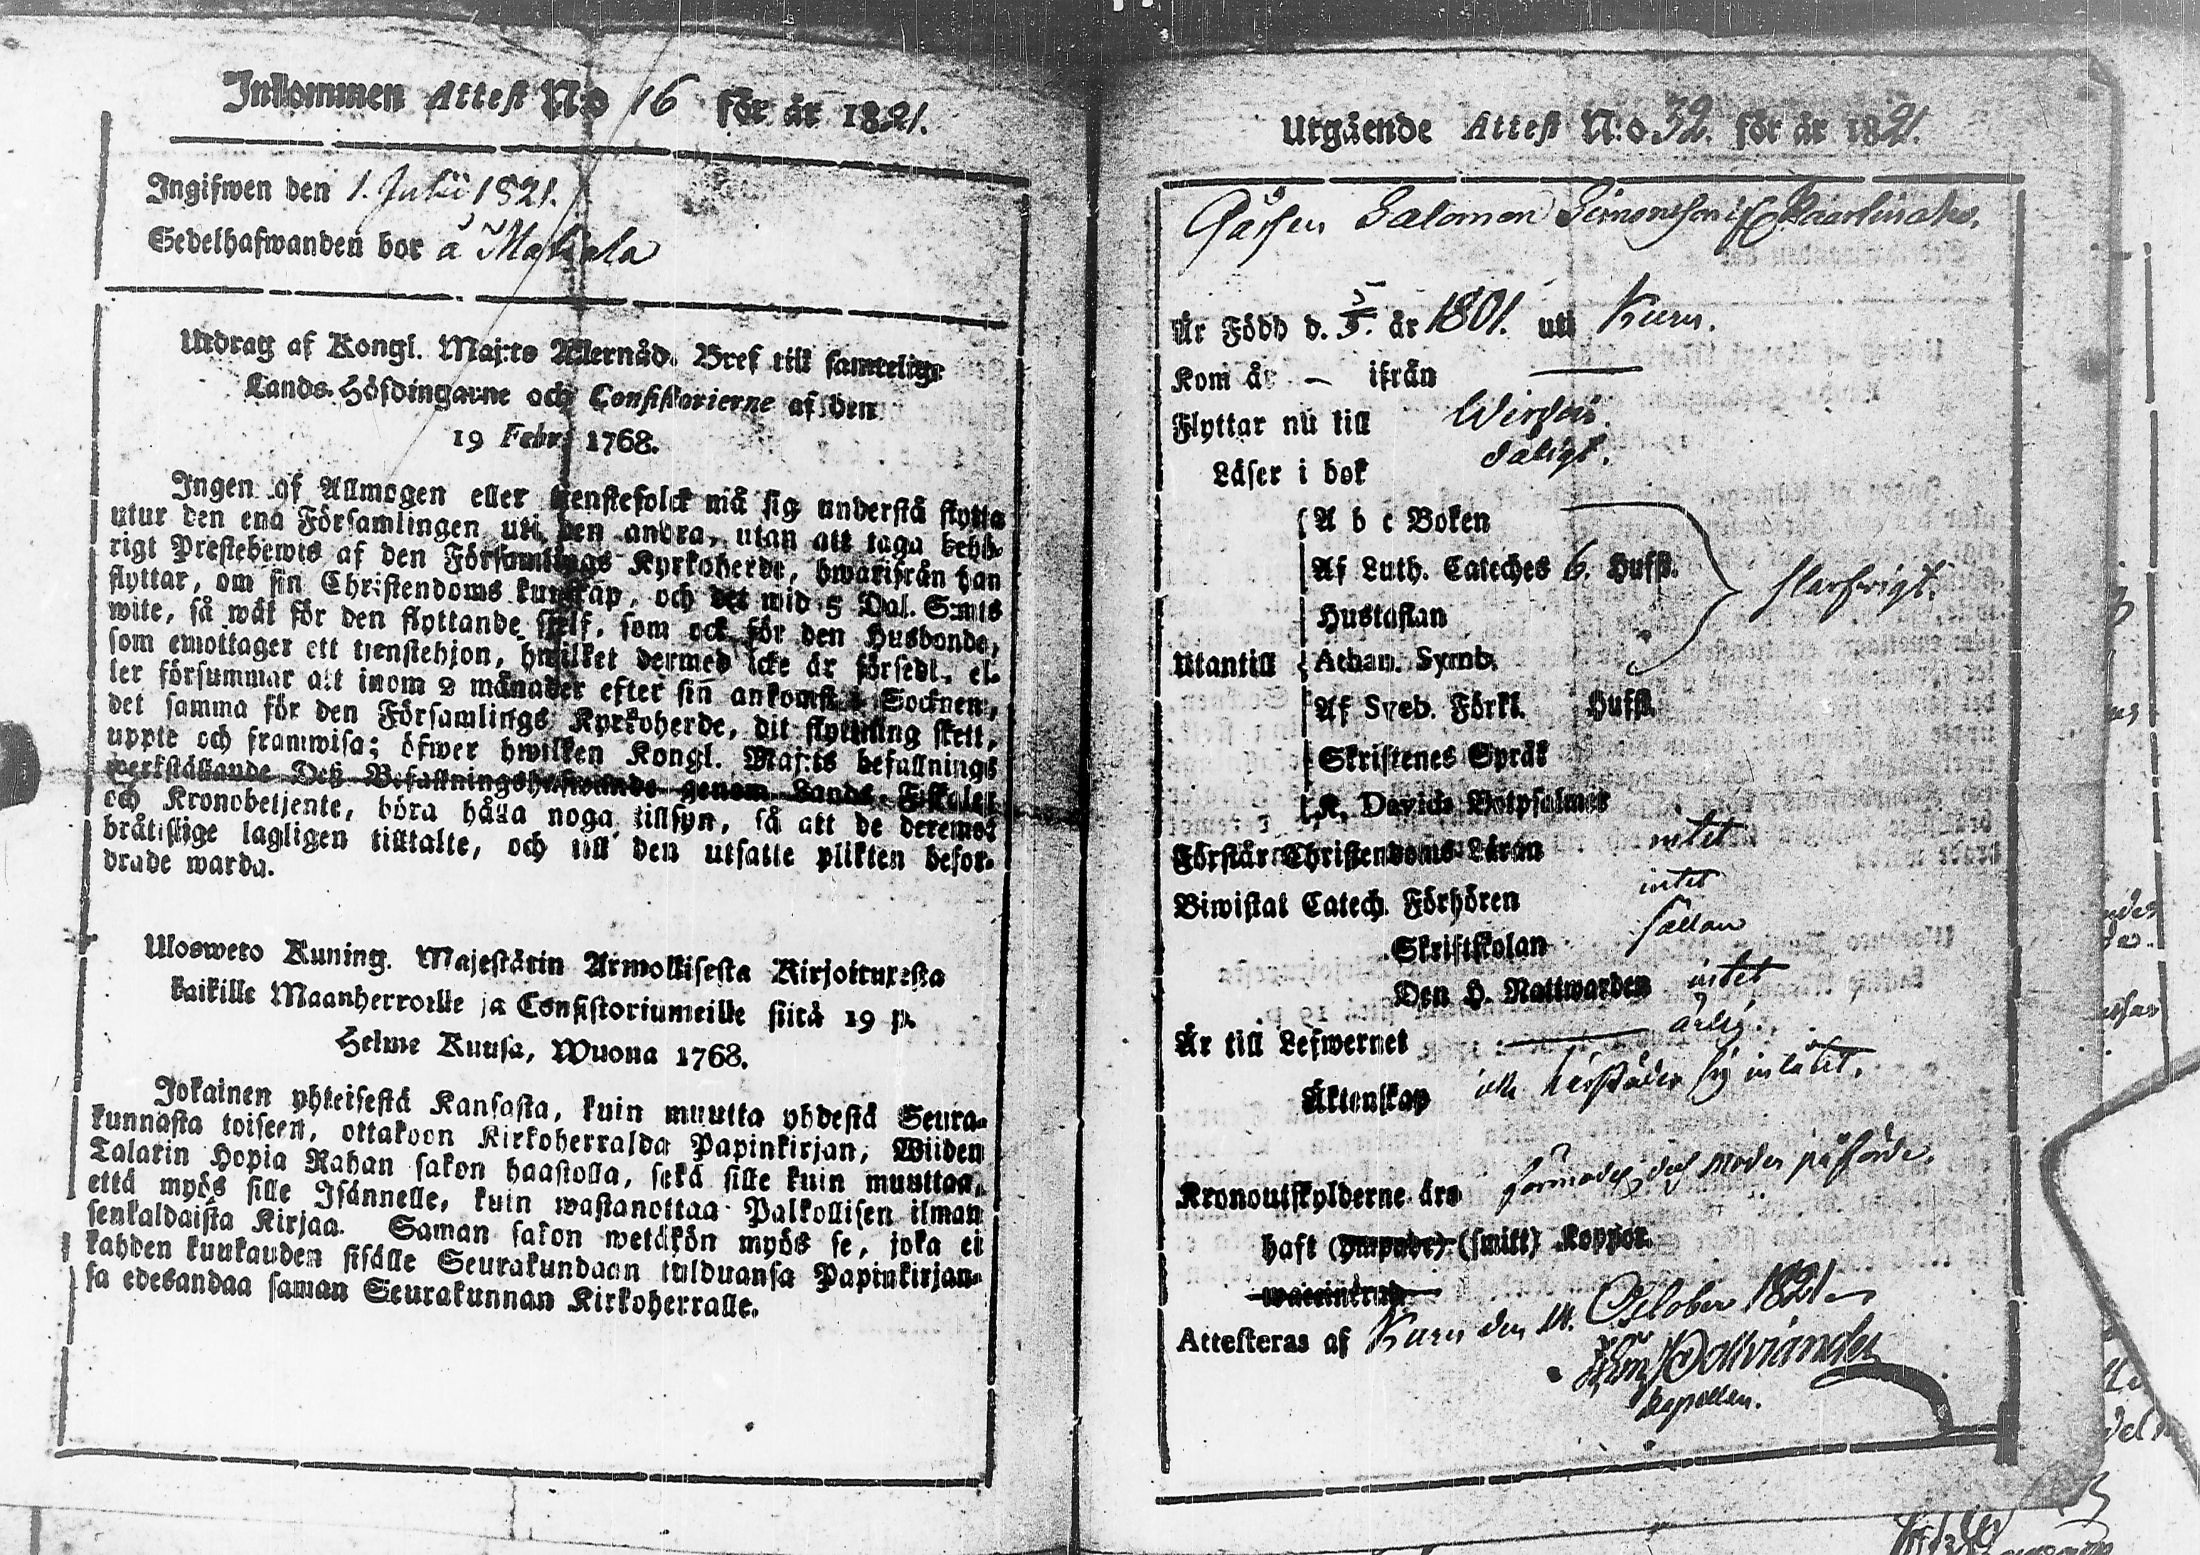 Inkommen Attest No 16 för år 1821.
Ingifwen den 1. Julii 1821.
Sedelhafwanden bor å
Utdrag af Kongl. Maj:ts Allernåd. Bref till samtelige
Lands-Höfdingarne och Consistorierne af den
19 Febr. 1768.
Ingen af Allmogen eller tienstefolck må sig understå flytta
utur den ena Församlingen uti den andra, utan att taga behö-
rigt Prestebewis af den Församlings Kyrkoherde, hwarifrån han
flyttar, om sin Christendoms kunskap, och det wid 5 Dal. S:mts
wite, så wäl för den flyttande sjelf, som ock för den Husbonde,
som emottager ett tienstehjon, hwilket dermed icke är försedt, el-
ler försummar att inom 2 månader efter sin ankomst i Socknen,
det samma för den Församlings Kyrkoherde, dit flyttning skett,
uppte och framwisa; öfwer hwilken Kongl. Maj:ts befallnings
werkställande Detz Befallningshafwande genom Lands-Fiskaler
och Kronobetjente, böra hålla noga tillsyn, så att de deremot
bråtislige lagligen tilltalte, och till den utsatte plikten befor-
drade warda.
Ulosweto Kuning. Majestätin Armollisesta Kirjoituxesta
kaikille Maanherroille ja Consistoriumeille siitä 19 p.
Helme Kuusa, Wuona 1768.
Jokainen yhteisestä Kansasta, kuin muutta yhdestä Seura-
kunnasta toiseen, ottakoon Kirkoherralda Papinkirjan, Wiiden
Talarin Hopia Rahan sakon haastolla, sekä sille kuin muuttaa,
että myös sille Isännelle, kuin wastanottaa Palkollisen ilman
senkaldaista Kirjaa. Saman sakon wetäkön myös se, joka ei
kahden kuukauden sisälle Seurakundaan tulduansa Papinkirjan-
sa edesandaa saman Seurakunnan Kirkoherralle.
Utgående Attest N:o 32. för år 1821.
Salomon Simonsson
Är Född d. 5/3. år 1801. uti Kuru.
Kom år — ifrån —
Flyttar nu till Wirdois.
Läser i bok dåligt.
A b c Boken
Af Luth. Cateches 6. Hufst.
slarfwigt.
Hustaflan
Utantill Athan. Symb.
Af Sveb. Förkl. Hufst.
Skriftenes Språk
K. Davids Botpsalmer
Förstår Christendoms Läran intet
Biwistat Catech. Förhören intet
Skriftskolan sällan
Den H. Nattwarden intet
Är till Lefwernet ärlig.
Äktenskap sig inlåtit.
Kronoutskylderne äro
haft (ympade) (smitt) Koppor.
waccinerad
Attesteras af Kuru den 14. October 1821
Kapellan.